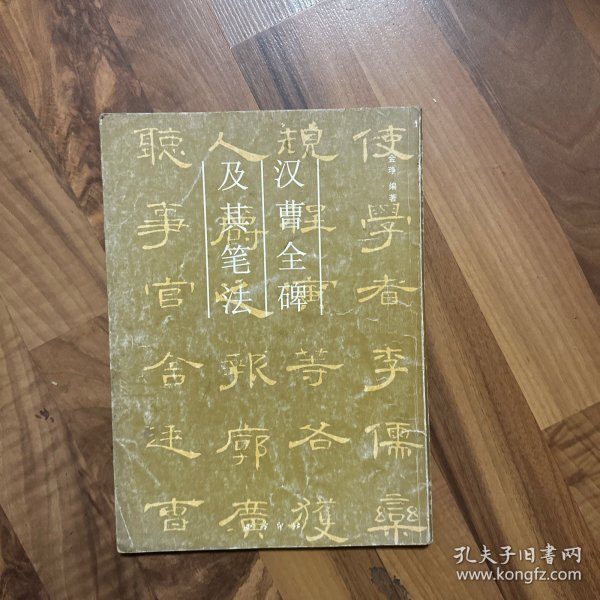 汉曹全碑
及其笔法
金 编著
使學者李儒欒
規程寅等各獲
人爵之報廓廣
聽事官舍廷曹
孔夫子旧书网
www.kongfz.com